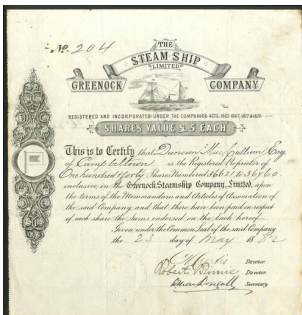 No. 204
THE
STEAM SHIP
LIMITED
GREENOCK COMPANY
REGISTERED AND INCORPORATED UNDER THE COMPANIES ACTS, 1862, 1867, 1877 & 1879.
SHARES VALUE £5 EACH
This is to Certify that Duncan MacCallum Esq
of Campbeltown is the Registered Proprietor of
One hundred forty Shares Numbered 36621 to 36760
inclusive, in the Greenock Steamship Company, Limited, upon
the terms of the Memorandum and Articles of Association of
the said Company and that there have been paid in respect
of each share the Sums endorsed on the back hereof
Given under the Common Seal of the said Company
the 23 day of May 1882
Director
Robert Binnie Director
Secretary